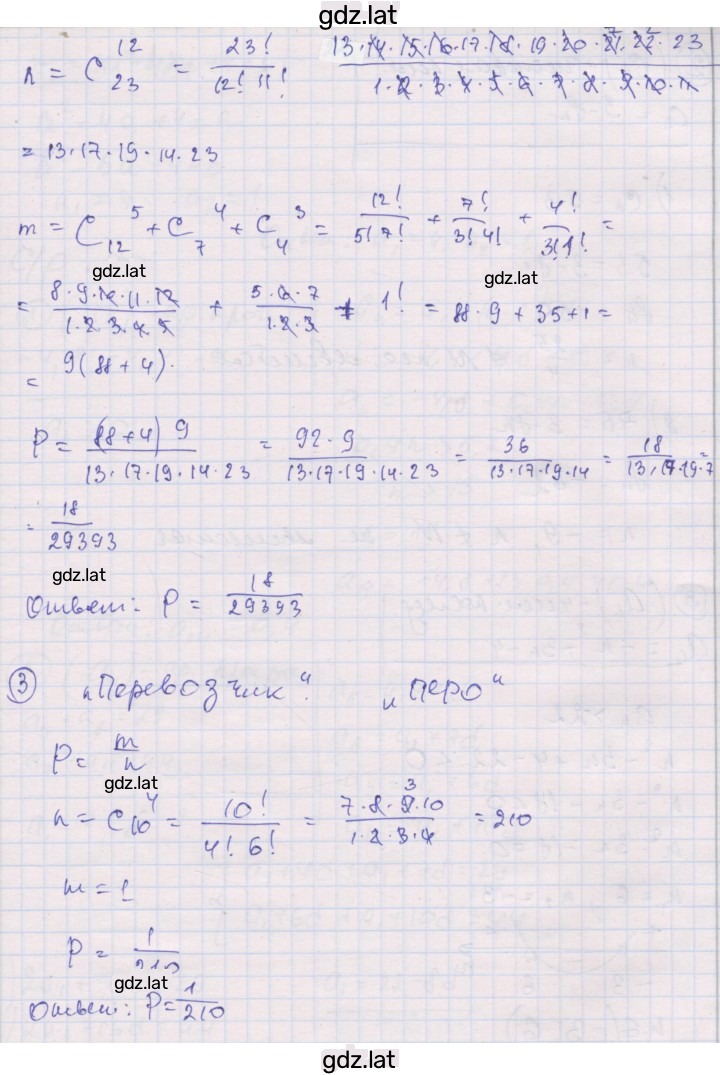 gdz.lat
n = C₂₃¹² = 23! / 12! 11!   13·14·15·16·17·18·19·20·21·22·23 / 1·2·3·4·5·6·7·8·9·10·11
= 13·17·19·14·23
m = C₁₂⁵ + C₇⁴ + C₄³ = 12! / 5! 7! + 7! / 3! 4! + 4! / 3! 1! =
gdz.lat gdz.lat
= 8·9·10·11·12 / 1·2·3·4·5 + 5·6·7 / 1·2·3 + 1! = 88·9 + 35 + 1 =
= 9(88 + 4).
P = (88+4) 9 / 13·17·19·14·23 = 92·9 / 13·17·19·14·23 = 36 / 13·17·19·14 = 18 / 13·17·19·7 =
= 18 / 29393
gdz.lat
Ответ: P = 18 / 29393
③ „Перевозчик“. „перо“
P = m / n
gdz.lat
n = C₁₀⁴ = 10! / 4! 6! = 7·8·9·10 / 1·2·3·4 = 210
3
m = 1
P = 1 / 210
gdz.lat
Ответ: P = 1 / 210
gdz.lat